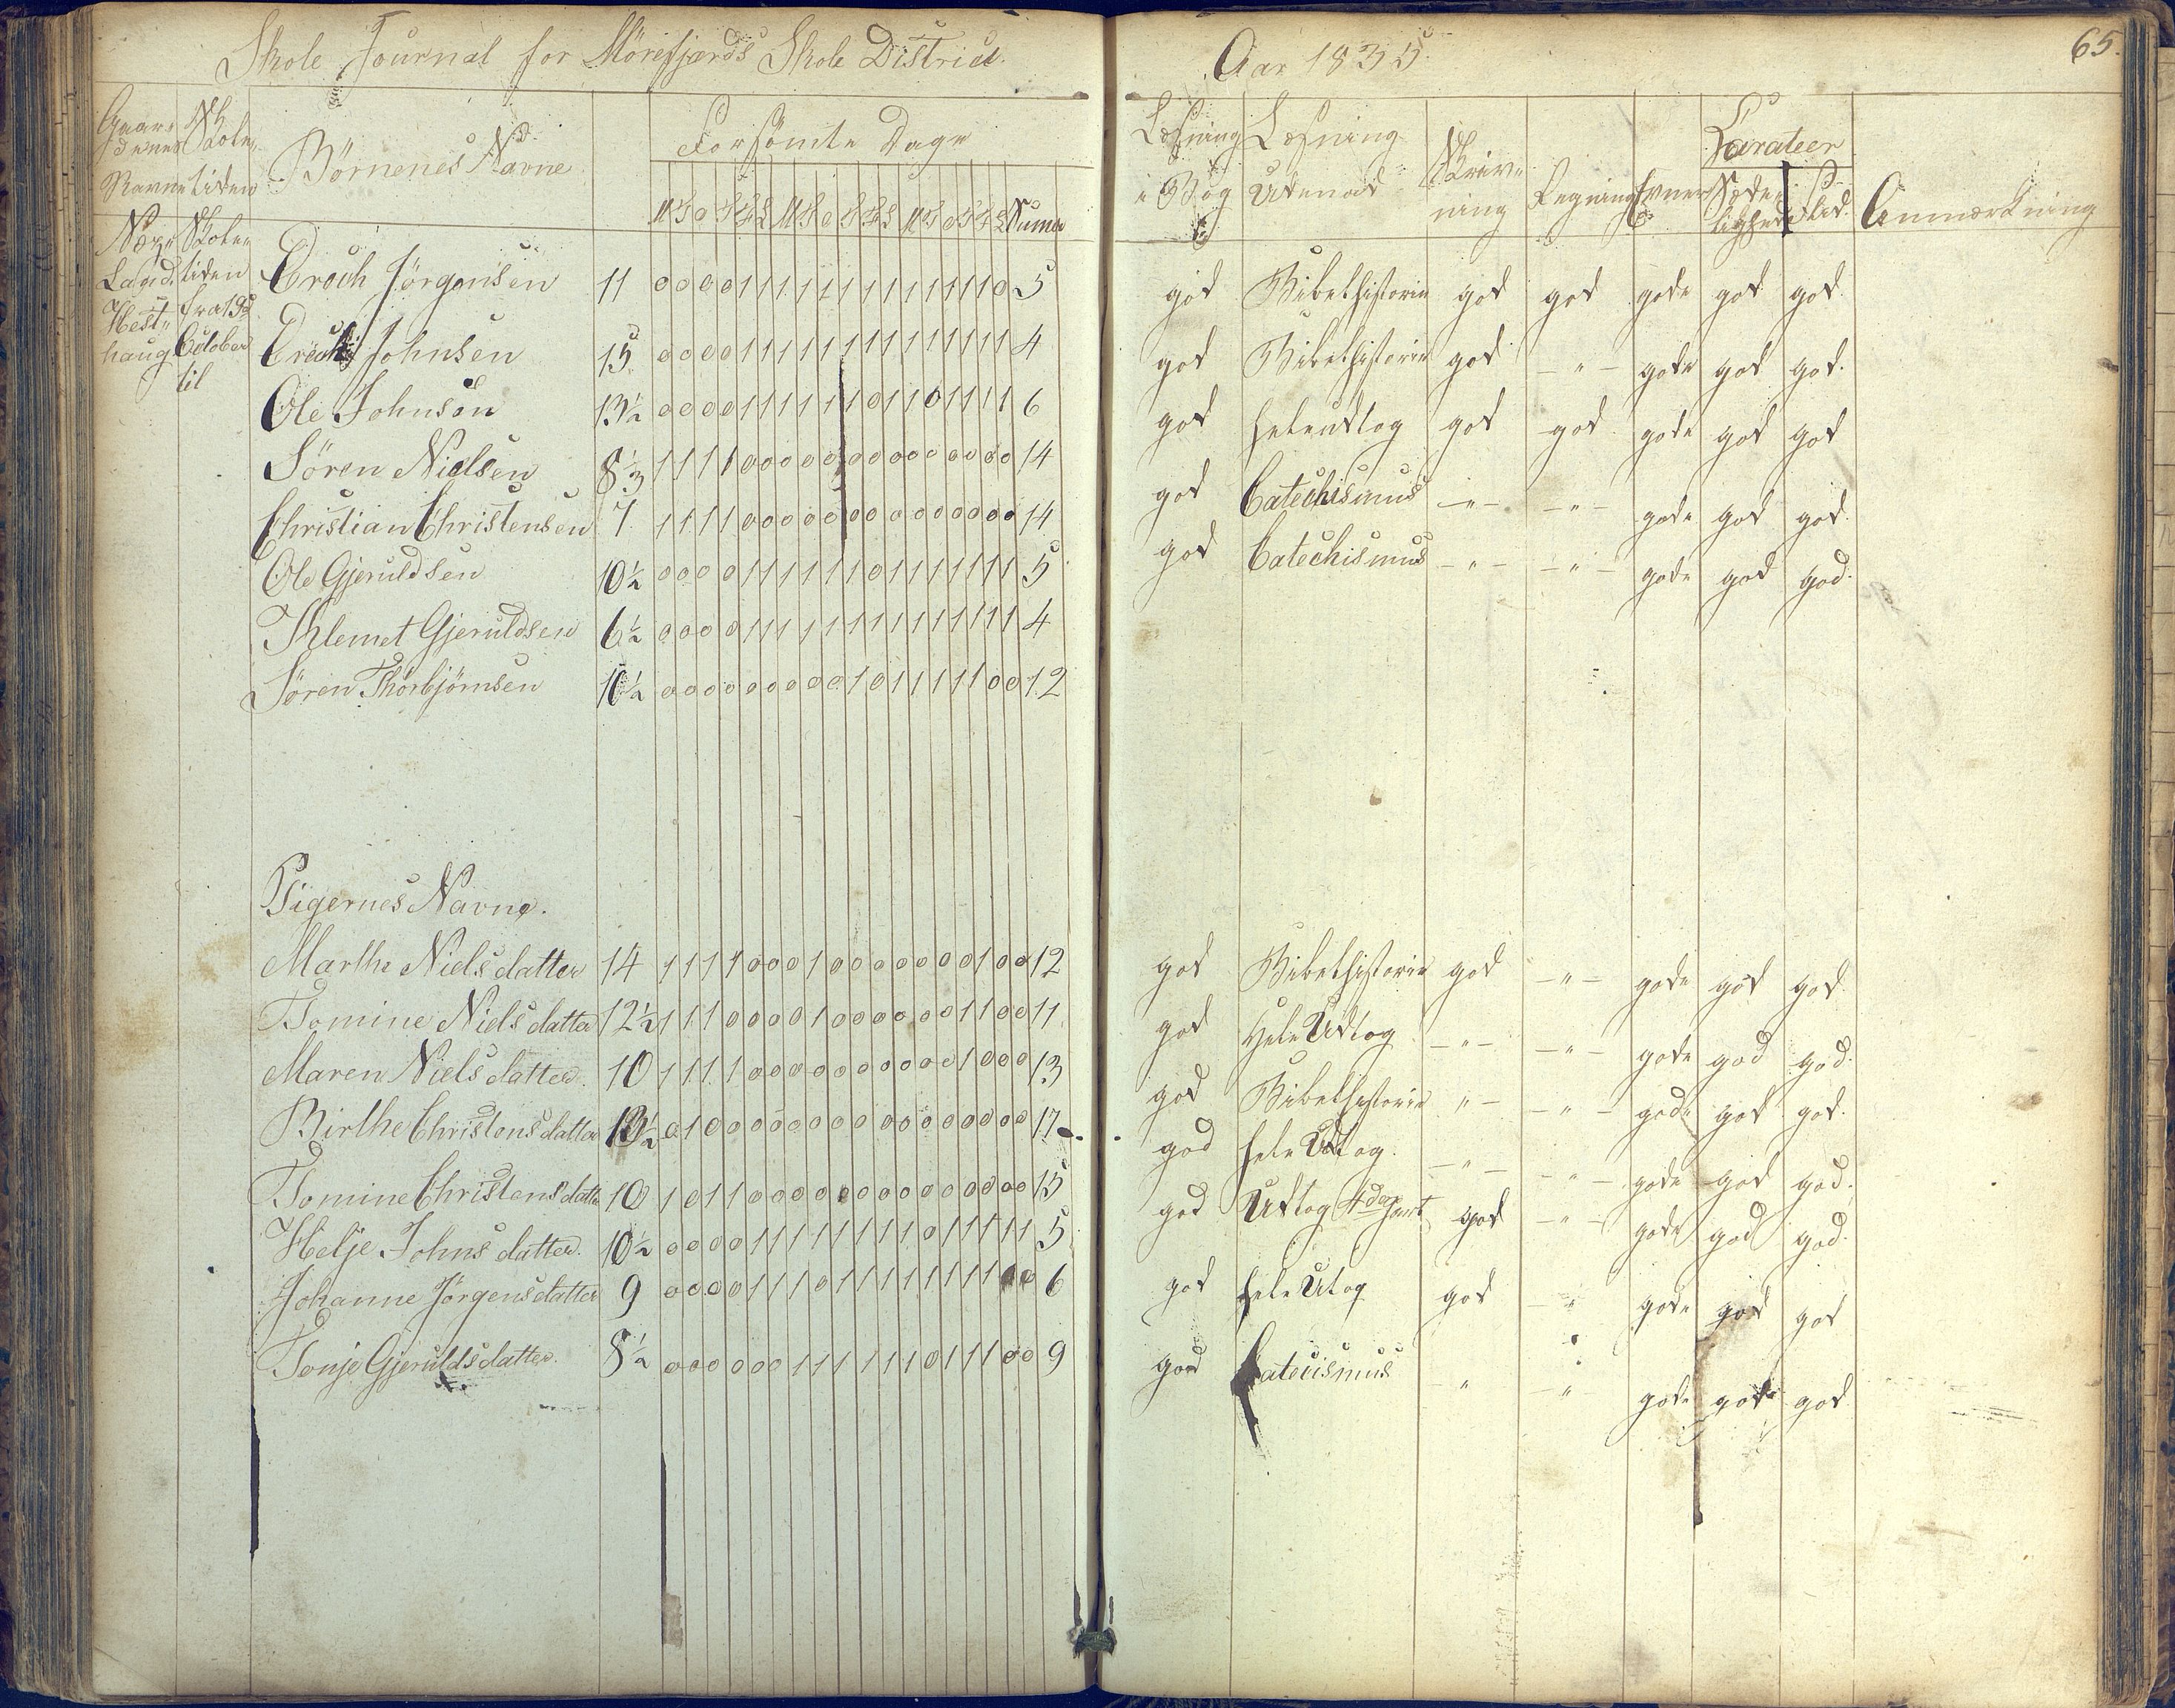 Skole Journal for Mörefjærds Skole District.
Aar 1835
65.
Gaardenes Navne
Skoletiden
Börnenes Navne
Forsömte Dage
M T O T F L M T O T F L M T O T F L Suma
Læsning i Bog
Læsning Udenad
Skrivning
Regning
Evner
Karateer
Sædelighed
Flid.
Anmærkning
Skoletiden fra 19de October til
Hesthaug
Erich Jörgensen 11 0 0 0 0 1 1 1 1 1 1 1 1 1 1 1 1 1 0 5 god Bibelhistorie god god gode god god.
Erich Johnsen 15 0 0 0 0 1 1 1 1 1 1 1 1 1 1 1 1 1 1 4 god Bibelhistorie god - " - gode god god.
Ole Johnsen 13½ 0 0 0 0 1 1 1 1 1 1 0 1 1 0 1 1 1 1 6 god hele udtog god god gode god god
Sören Nielsen 8⅓ 1 1 1 1 0 0 0 0 0 0 0 0 0 0 0 0 0 0 14 god Catechismus - " - - " - gode god god.
Christian Christensen 7 1 1 1 1 0 0 0 0 0 0 0 0 0 0 0 0 0 0 14 god Catechismus - " - - " - gode god god.
Ole Gjeruldsen 10½ 0 0 0 0 1 1 1 1 1 1 0 1 1 1 1 1 1 1 5
Thlemet Gjeruldsen 6½ 0 0 0 0 1 1 1 1 1 1 1 1 1 1 1 1 1 1 4
Sören Thorbjörnsen 10½ 0 0 0 0 0 0 0 0 0 1 0 1 1 1 1 1 0 0 12
Pigernes Navne.
Marthe Nielsdatter 14 1 1 1 1 0 0 0 1 0 0 0 0 0 0 0 1 0 0 12 god Bibelhistorie god - " - gode god god.
Tomine Nielsdatter 12½ 1 1 1 0 0 0 0 1 0 0 0 0 0 0 1 1 0 0 11 god Hele Udtog - " - - " - gode god god.
Maren Nielsdatter. 10 1 1 1 1 0 0 0 0 0 0 0 0 0 0 1 0 0 0 13 god Bibelhistorie " - - " - gode god god.
Birthe Christensdatter 13½ 0 1 0 0 0 0 0 0 0 0 0 0 0 0 0 0 0 0 17 god hele Udtog. - " - - " - gode god god.
Tomine Christensdatter 10 1 0 1 1 0 0 0 0 0 0 0 0 0 0 0 0 0 0 15 god Udtog 4de part god - " - gode god god.
Helje Johnsdatter. 10½ 0 0 0 0 1 1 1 1 1 1 1 1 0 1 1 1 1 1 5
Johanne Jörgensdatter 9 0 0 0 0 1 1 1 0 1 1 1 1 1 1 1 1 0 0 6 god hele Utog god " gode god god
Tonje Gjeruldsdatter. 8½ 0 0 0 0 0 0 1 1 1 1 1 1 0 1 1 1 0 0 9 god Catecismus " - " gode god god